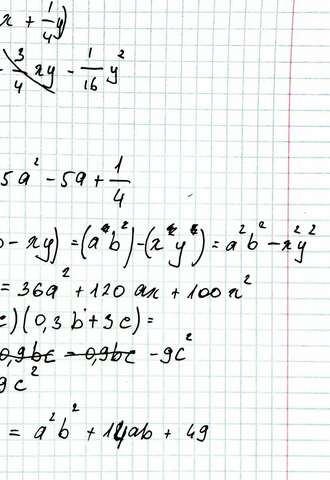 x + 1/4 y)
- 3/4 xy - 1/16 y²
5a² - 5a + 1/4
- xy) = (a²b²) - (x²y²) = a²b² - x²y²
= 36a² + 120 an + 100n²
c)(0,3b + 3c) =
0,9bc - 0,9bc - 9c²
9c²
= a²b² + 14ab + 49